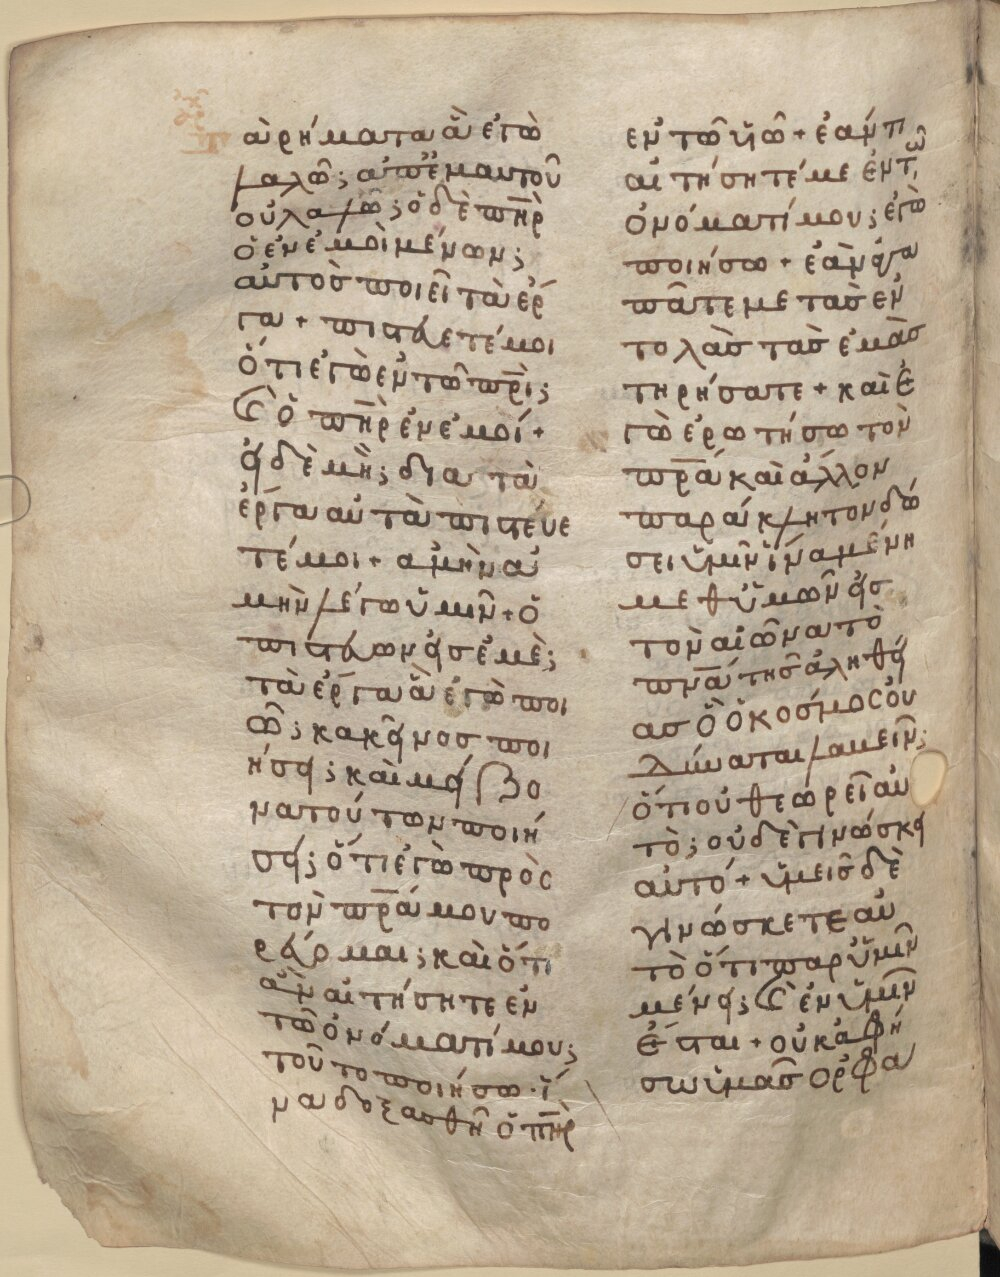 ὰρήματα ἃ ἐγὼ
λαλῶ; ἀπ' ἐμαυτοῦ
οὐλαλῶ; ὁ δὲ πη̅ρ
ὁ ἐν ἐμοὶ μένων;
αὐτὸς ποιεῖ τὰ ἔρ
γα + πιστεύετέ μοι
ὅτι ἐγὼ ἐν τῶ πρ̅ὶ;
Ϛ ὁ πη̅ρ ἐν ἐμοί +
εἰ δὲ μὴ; δια τὰ
ἐργα αὐτὰ πιστεύε
τέ μοι + αμὴν ἀ
μὴν λέγω ὑμῖν + ὁ
πιστεύων εἰς ἐμὲ;
τὰ ἔργα ἃ ἐγὼ ποι
ῶ; κακεῖνος ποι
ήσει; καὶ μείζο
να τούτων ποιή
σει; ὅτι ἐγὼ πρὸς
τὸν πρ̅α μου πο
ρεύομαι; καὶ ὅτι
ἂν αἰτήσητε εν
τῶ ὀνόματί μου;
τοῦτο ποιήσω· ἵ
να δοξασθῆ ὁ πη̅ρ
εν τῶ υἱῶ + ἐάν τι
αἰτήσητέ με ἐν τῶ
ὀνόματί μου; ἐγὼ
ποιήσω + ἐὰν ἀγα
πᾶτε με τὰσ ἐν
τολὰσ τὰσ ἐμὰσ
τηρήσατε + καὶ ἐ
γὼ ἐρωτήσω τὸν
πρ̅α καὶ ἄλλον
παράκλητον δώ
σει ὑμῖν ἵνα μένη
μεθ ὑμῶν εἰσ
τὸν αἰῶνα τὸ
πν̅α τῆσ ἀληθεί
ασ ὃ ὁ κοσμοσ οὐ
δύναται λαβεῖν;
ὅτι οὐ θεωρεῖ αὐ
τὸ; οὐδὲ γινώσκει
αὐτό + ὑμεισ δὲ
γινώσκετε αὐ
τὸ ὅτι παρ ὑμῖν
μένει; Ϛ ἐν ὑμῖν
ἔσται + οὐκ ἀφή
σω ὑμᾶσ ορφα